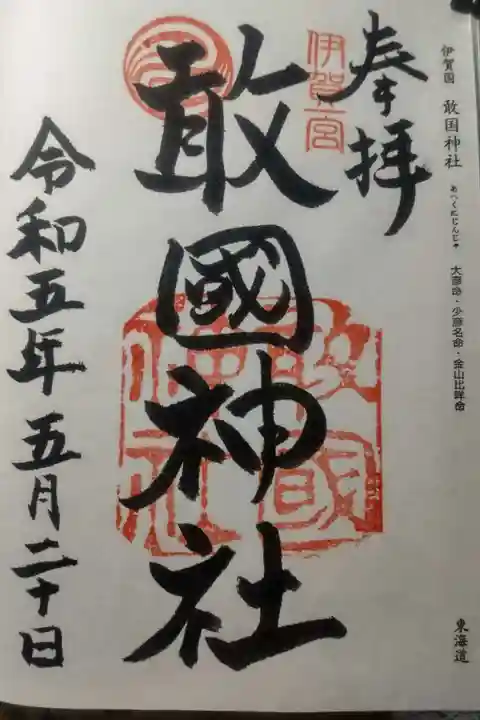 伊賀国 敢国神社 あへくにじんじゃ 大彦命・少彦名命・金山比咩命
東海道
奉拝
伊賀一宮
敢國神社
敢國神社
令和五年五月二十日